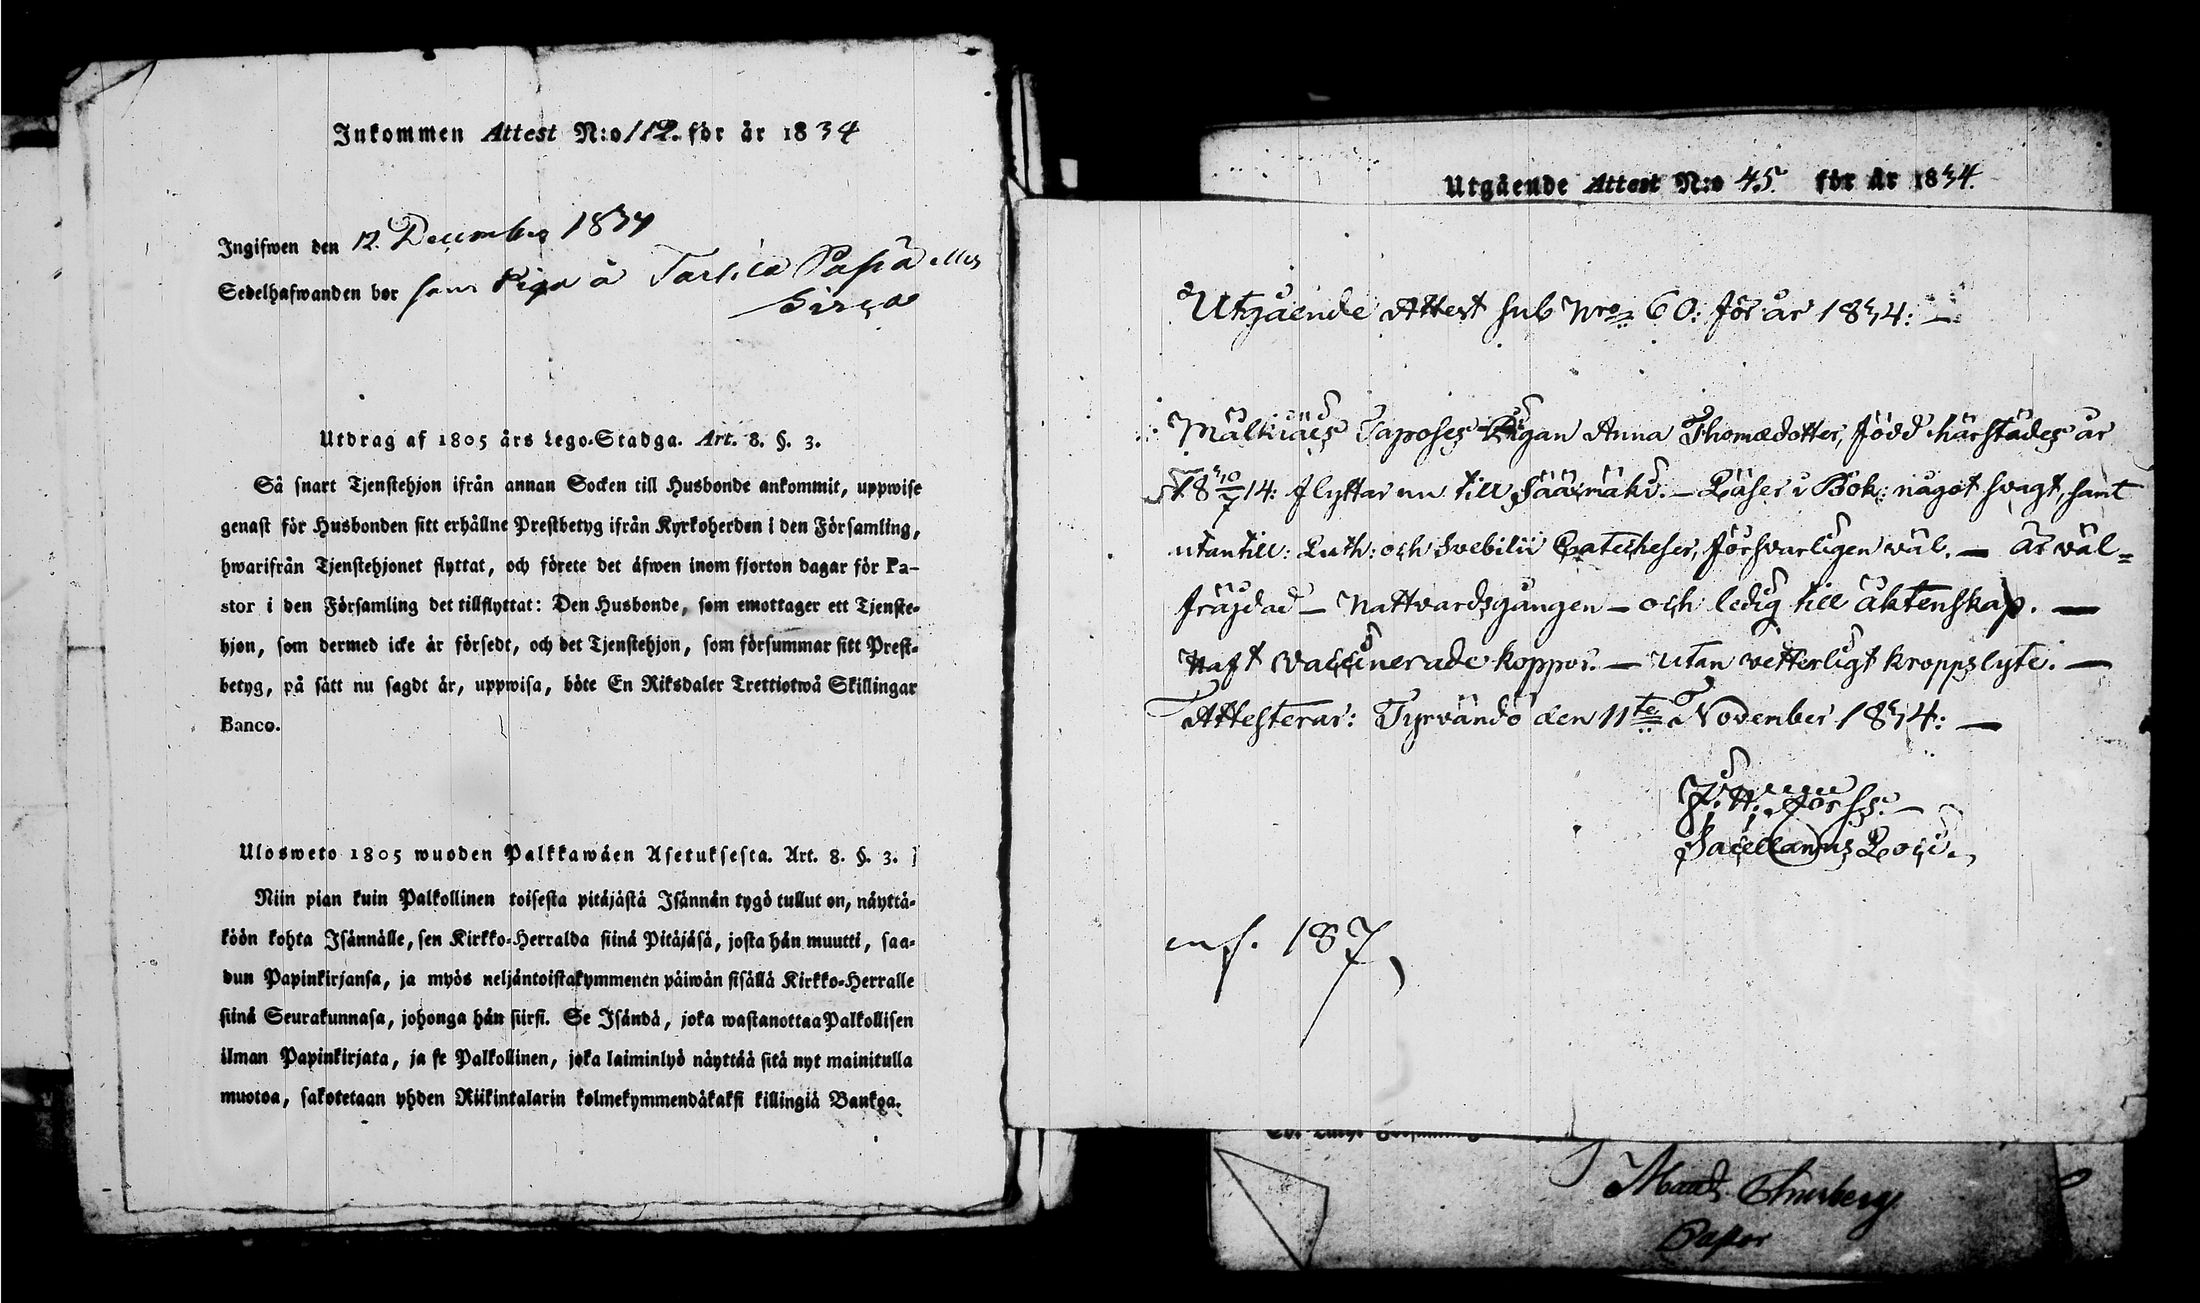 Inkommen Attest N:o 112. för år 1834
Ingifwen den 12 December 1834
Sedelhafwanden bor som Piga å
Utdrag af 1805 års Lego-Stadga. Art. 8. §. 3.
Så snart Tjenstehjon ifrån annan Socken till Husbonde ankommit, uppwise
genast för Husbonden sitt erhållne Prestbetyg ifrån Kyrkoherden i den Församling,
hwarifrån Tjenstehjonet flyttat, och förete det äfwen inom fjorton dagar för Pa-
stor i den Församling det tillflyttat: Den Husbonde, som emottager ett Tjenste-
hjon, som dermed icke är försedt, och det Tjenstehjon, som försummar sitt Prest-
betyg, på sätt nu sagdt är, uppwisa, böte En Riksdaler Trettiotwå Skillingar
Banco.
Ulosweto 1805 wuoden Palkkawäen Asetuksesta. Art. 8. §. 3.
Niin pian kuin Palkollinen toisesta pitäjästä Isännän tygö tullut on, näyttä-
köön kohta Isännälle, sen Kirkko-Herralda siinä Pitäjäsä, josta hän muutti, saa-
dun Papinkirjansa, ja myös neljäntoistakymmenen päiwän sisällä Kirkko-Herralle
siinä Seurakunnasa, johonga hän siirsi. Se Isändä, joka wastanottaa Palkollisen
ilman Papinkirjata, ja se Palkollinen, joka laiminlyö näyttää sitä nyt mainitulla
muotoa, sakotetaan yhden Riikintalarin kolmekymmendäkaksi killingiä Bankoa.
Utgående Attest N:o 45. för år 1834.
Utgående Attest sub Nro 60: för år 1834: —
Mälkiäis Taposes Pigan Anna Thomædotter, född härstädes år
18 30/7 14: flyttar nu till Sääxmäki. — Läser i Bok: något svagt, samt
utantill: Luth: och Svebilii Catecheser, försvarligen väl. — är väl-
frägdad — Nattvardsgången — och ledig till äktenskap. —
Haft vaccinerade koppor. — utan vetterligt kroppslyte. —
Attesterar: Tyrvändö den 11te November 1834: —
Sacellanus Loci.
inf. 187,